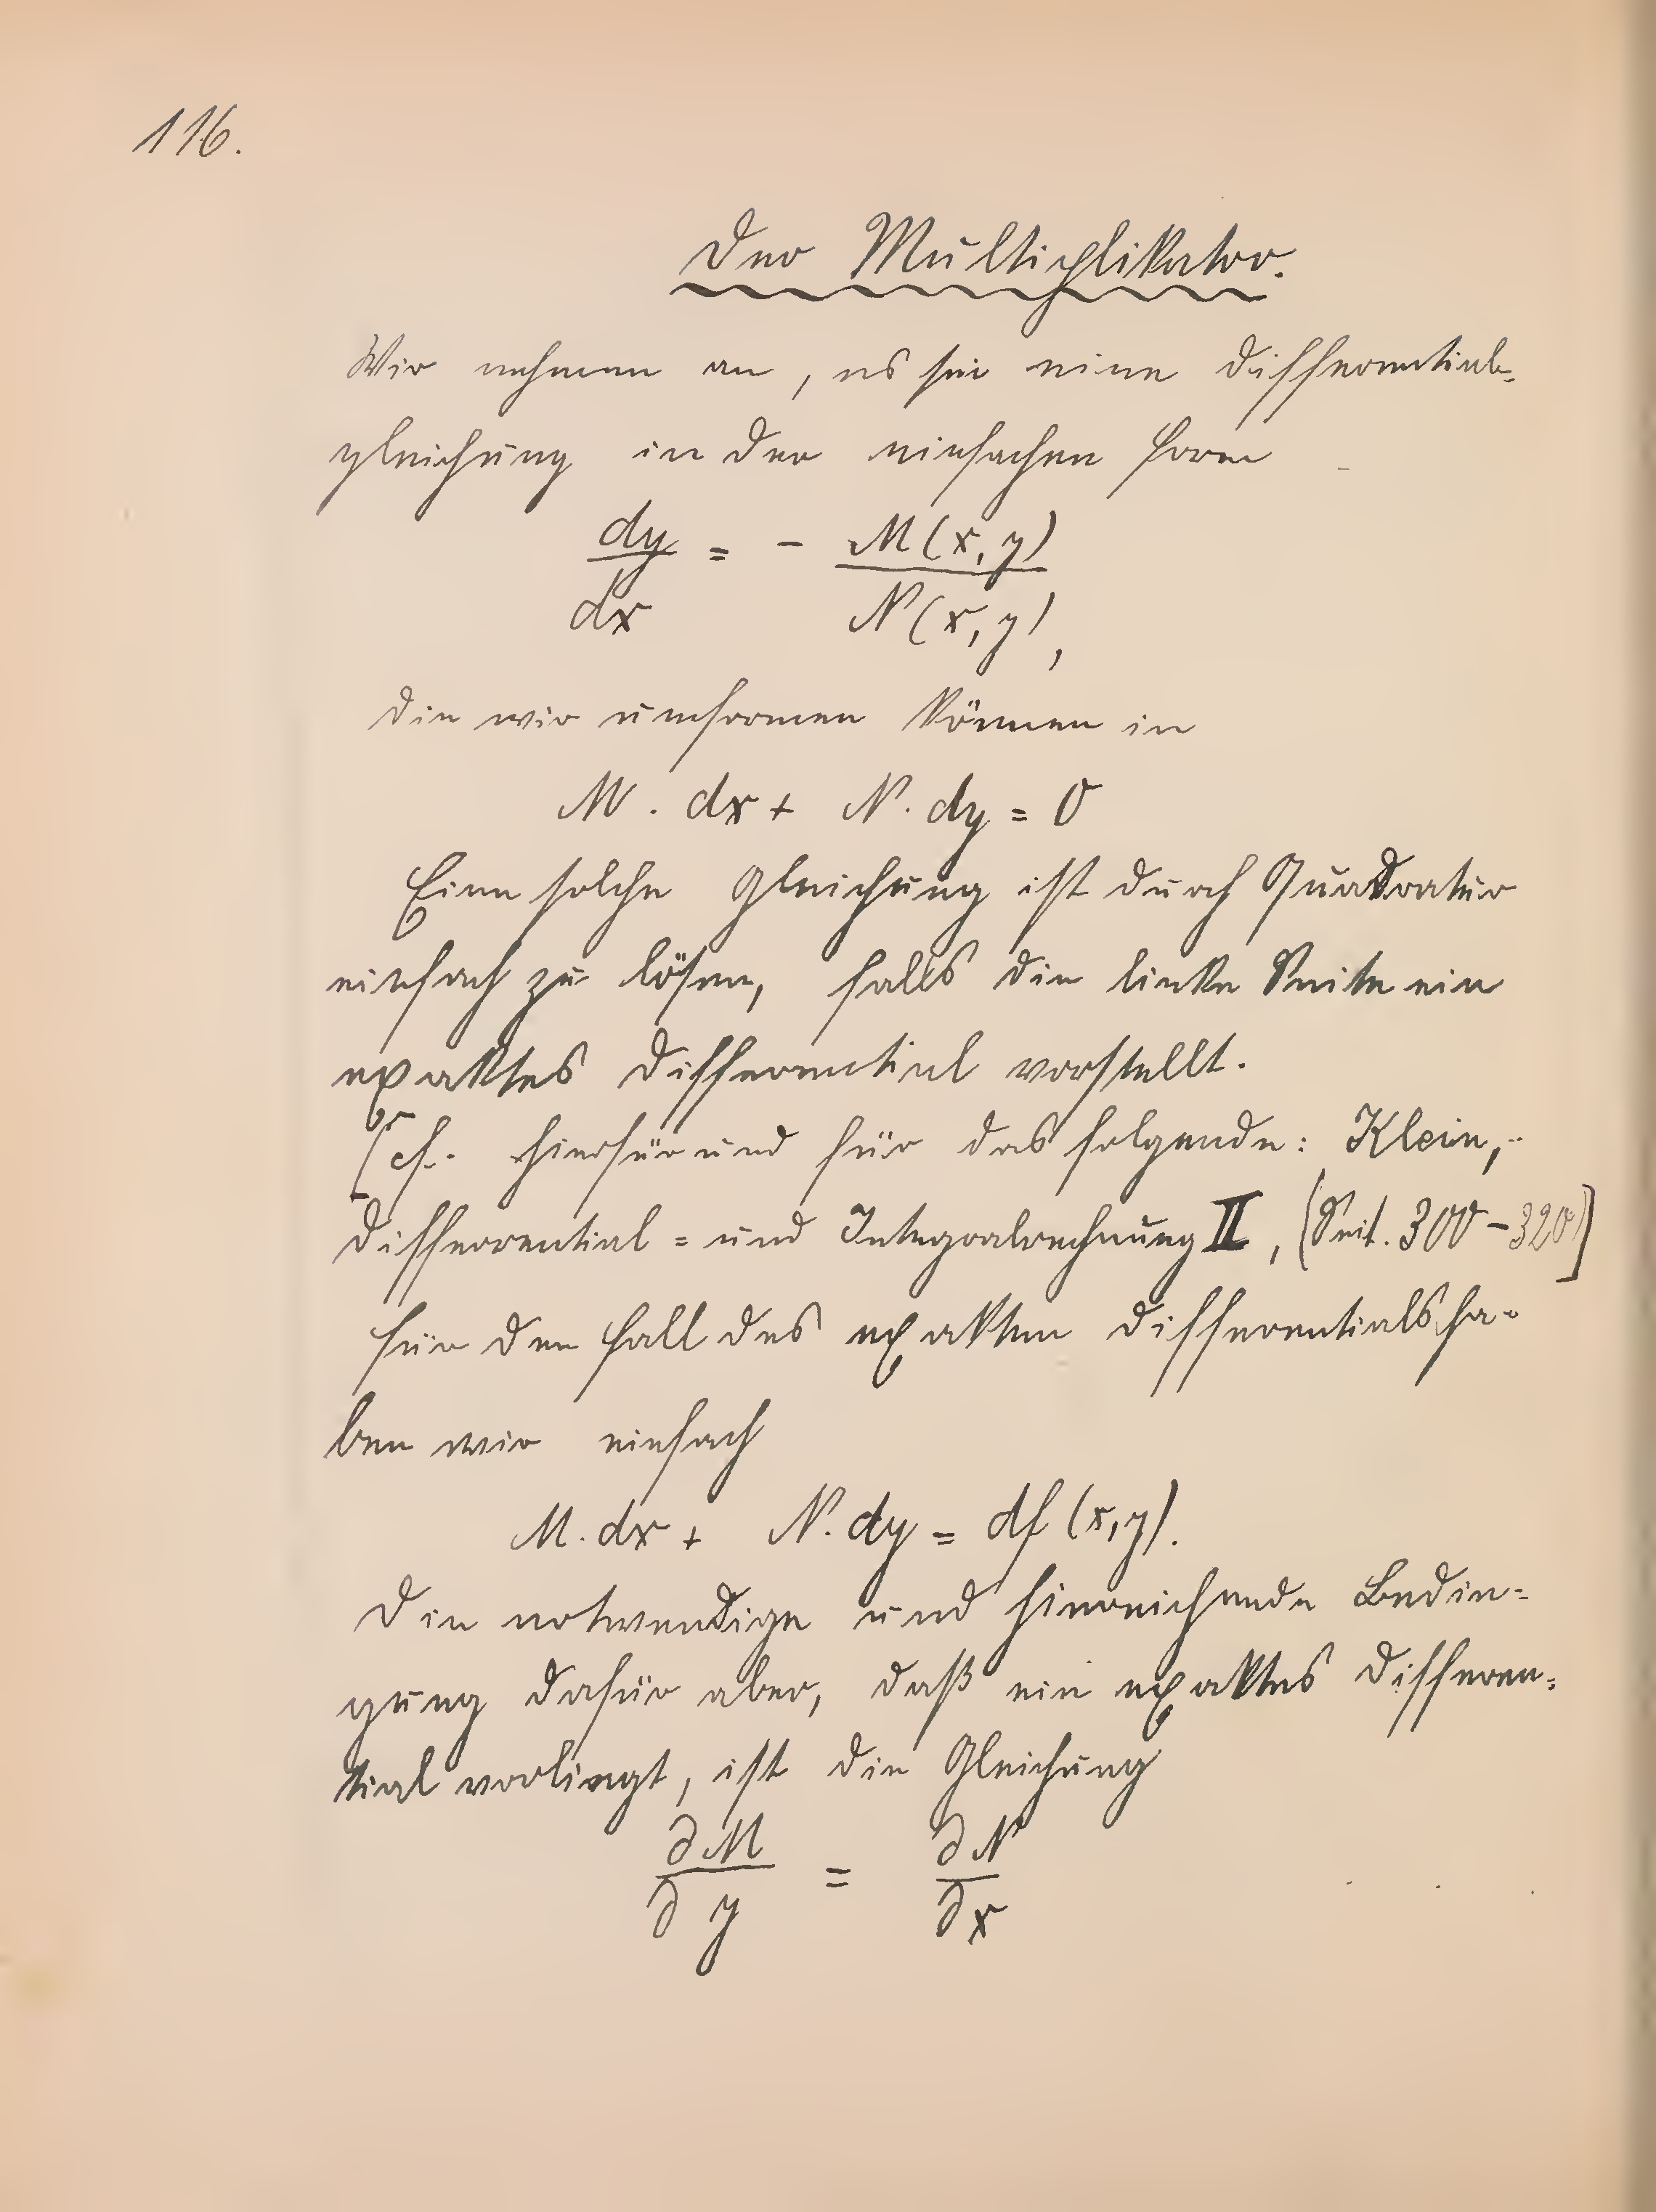 116.
Der Multiplikator.
Wir nehmen an, es sei eine Differential-
gleichung in der einfachen Form
dy/dx = - M(x,y)/N(x,y),
die wir umformen können in
M. dx + N. dy = 0
Eine solche Gleichung ist durch Quadratur
einfach zu lösen, falls die linke Seite ein
exaktes Differential vorstellt.
[cf. hierfür und für das folgende: Klein,
Differential- und Integralrechnung II, (Seit. 300-320)]
Für den Fall des exakten Differentials ha-
ben wir einfach
M. dx + N. dy = df(x,y).
Die notwendige und hinreichende Bedin-
gung dafür aber, daß ein exaktes Differen-
tial vorliegt, ist die Gleichung
∂M/∂y = ∂N/∂x